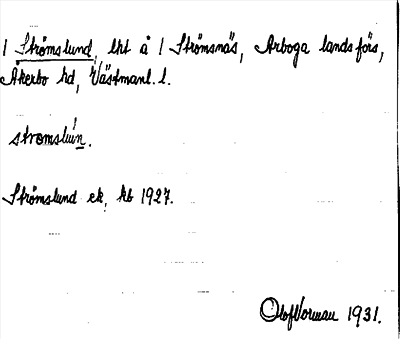 1 Strömslund, lht å 1 Strömsnäs, Arboga landsförs,
Åkerbo hd, Västmanl. l.
strömslún.
Strömslund ek, kb 1927.
Olof Vorman 1931.